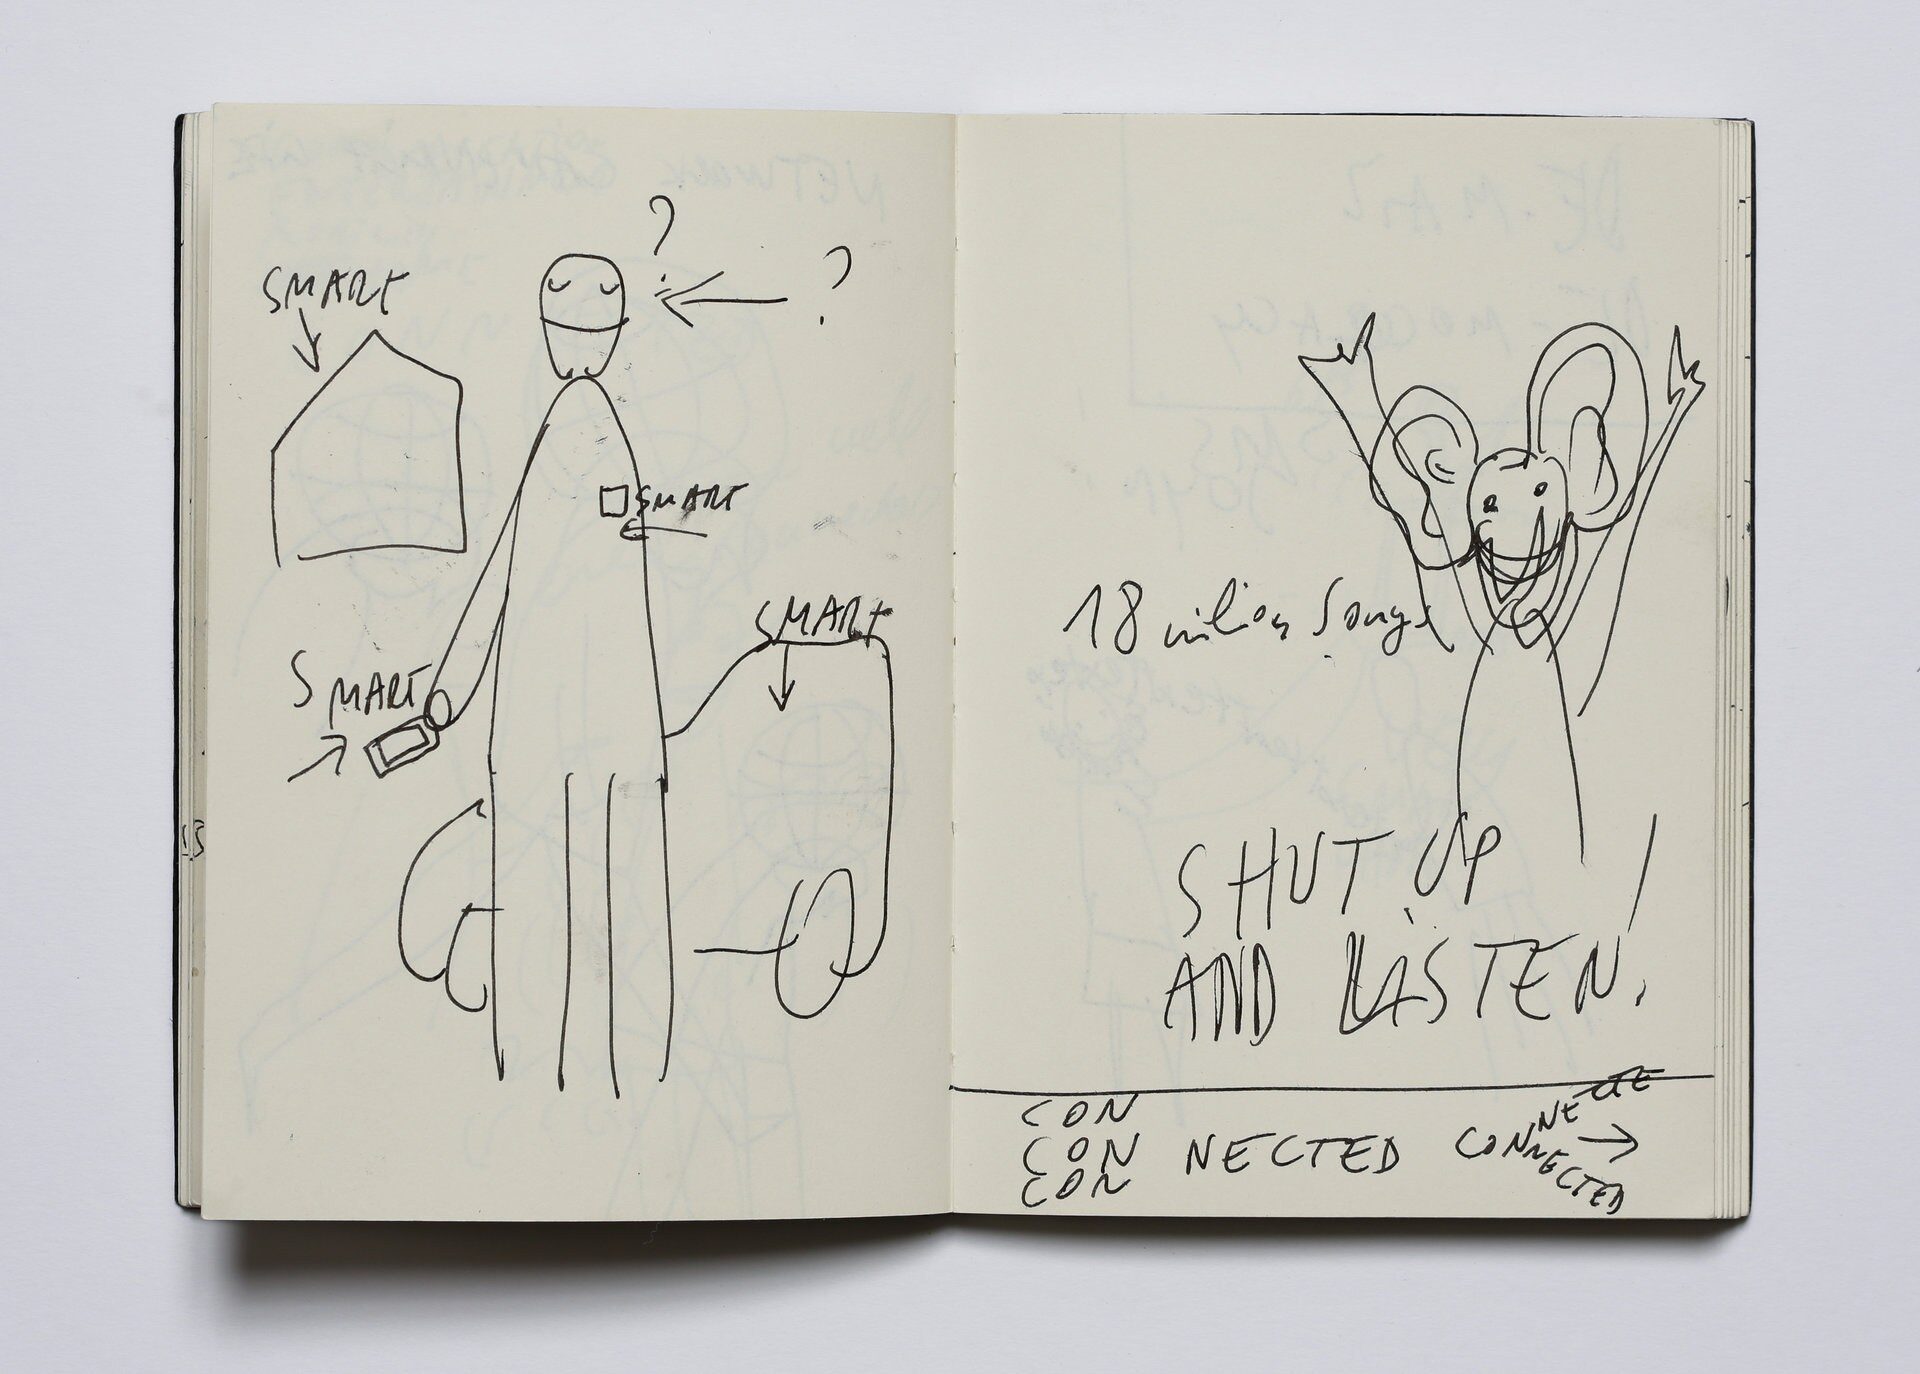 ?
?
SMART
SMART
SMART
SMART
18 million Songs
SHUT UP
AND LISTEN!
CON
CON NECTED CONNECTED
CON